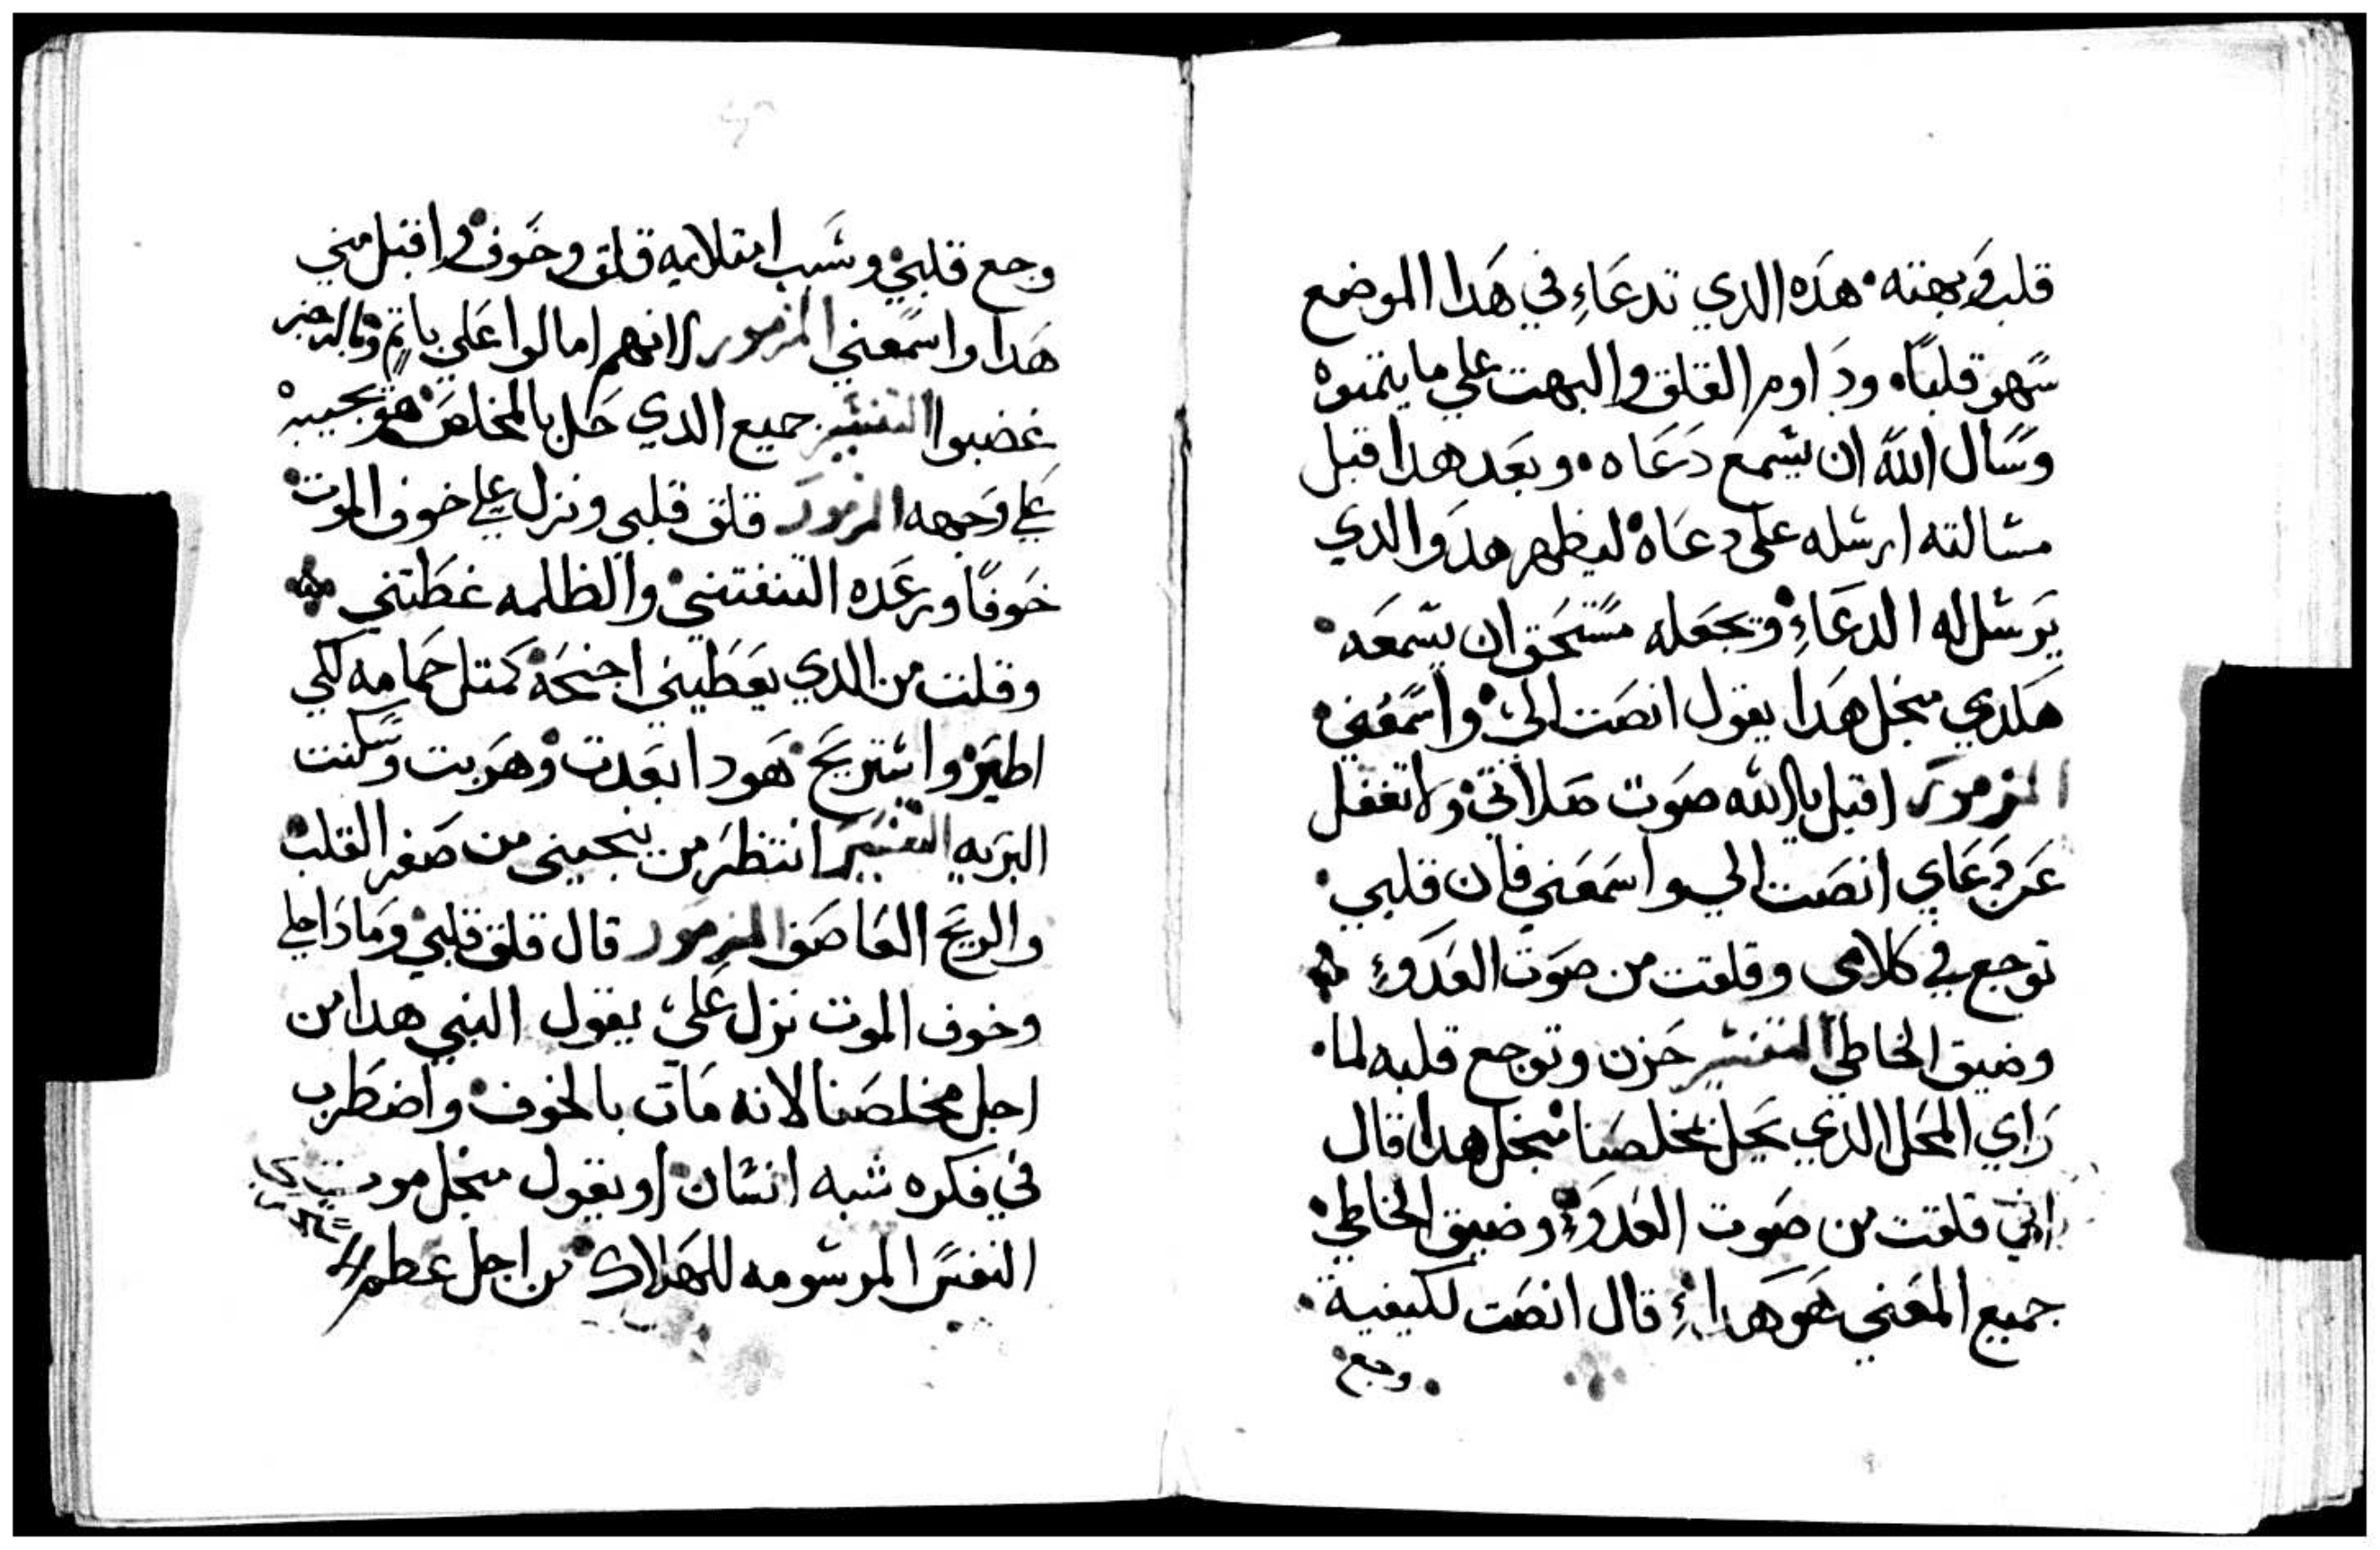 قلب وبهته. هَده الدي تدعَاءِ في هَدا الموضع
سَهو قلباً. ودَاوم القلق والبهت علي ما يتمنوه
وسَال اللهَ ان يسَمع دَعَاه. وبعَد هدا قبل
مسَالته ارسَله علي دعَاه ليظهر هدَوا الدي
يَرسَل له الدعَاءِ ويجعَله مسَتحَق ان يسَمعَه.
هَلدي منجل هَدا يقول انصَت اليَ واسَمعَني
المزمور اقبل يا الله صَوت صَلاتي ولا تغفل
عَن دعَاي انصَت الي واسَمعَني فان قلبي.
توجع في كلامي وقلقت من صَوت العَدوءِ
وضيق الخاطي التفسَير حَزن وتوجع قلبه لما.
رَاي المحَل الدي يحَل بمخلصَنا منجل هدا قال
اني قلقت من صَوت العَدوءِ وضيق الخاطي
جميع المعَني هَو هَداءِ قال انصَت لكيفية
وجع
وجع قلبي وسَبب امتلايه قلق وخَوف واقبل مني
هَدا واسَمعَني المزمور لانهم امالوا عَلي باتم وبالرجز
غضبوا التفسَير جميع الدي حَل بالمخلصَ هو يجيبه
عَلي وَجهه المزمور قلق قلبي ونزل علي خوف الموت
خَوفًا ورعَده التفتني والظلمه غطَتني
وقلت من الدي يعَطَيني اجنحَة كمتل حَمامه لكي
اطيَر واسَتريَح هَودا ابعَدت وهَربت وسَكنت
البَريه التفسَير انتظرَ من ينجيني من صَغر القلب
والريَح العَاصَف المزمور قال قلق قلبي ومَادَا حل
وخوف الموت نزل عَلي يقول النبي هدا من
اجل مخلصَنا لانه مَات بالخوف واضطَرب
في فكره شبه انسَان او يقول منجل موت
النفسَ المرسومه للهَلاك من اجل عَظم